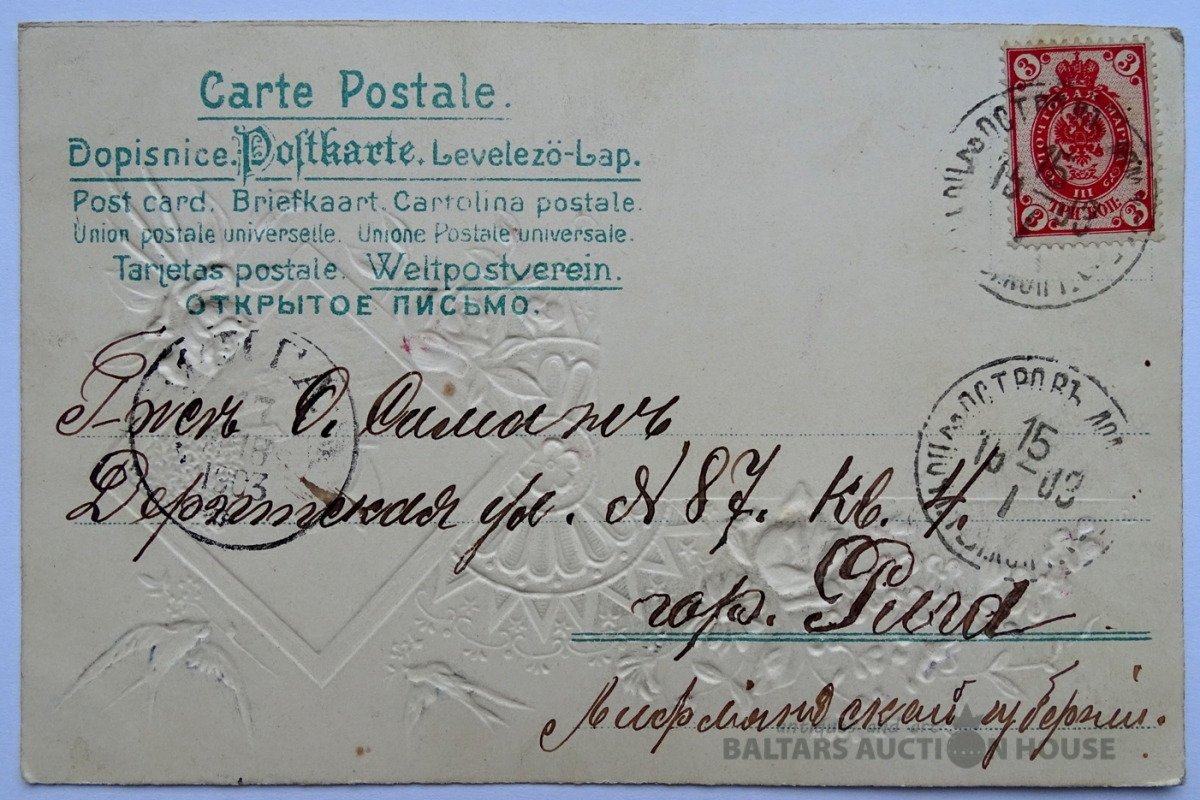 Carte Postale.
Dopisnice. Postkarte. Levelezö-Lap.
Post card. Briefkaart. Cartolina postale.
Union postale universelle. Unione Postale universale.
Tarjetas postale. Weltpostverein.
ОТКРЫТОЕ ПИСЬМО.
3 3
ПОЧТОВАЯ МАРКА
III
ТРИ КОП.
3 3
РИГА
1903
15
1 03
Г-жѣ О.
Дерптская ул. N 87. кв. 4.
гор. Рига
Лифляндской губерніи.
antiques and art
BALTARS AUCTION HOUSE